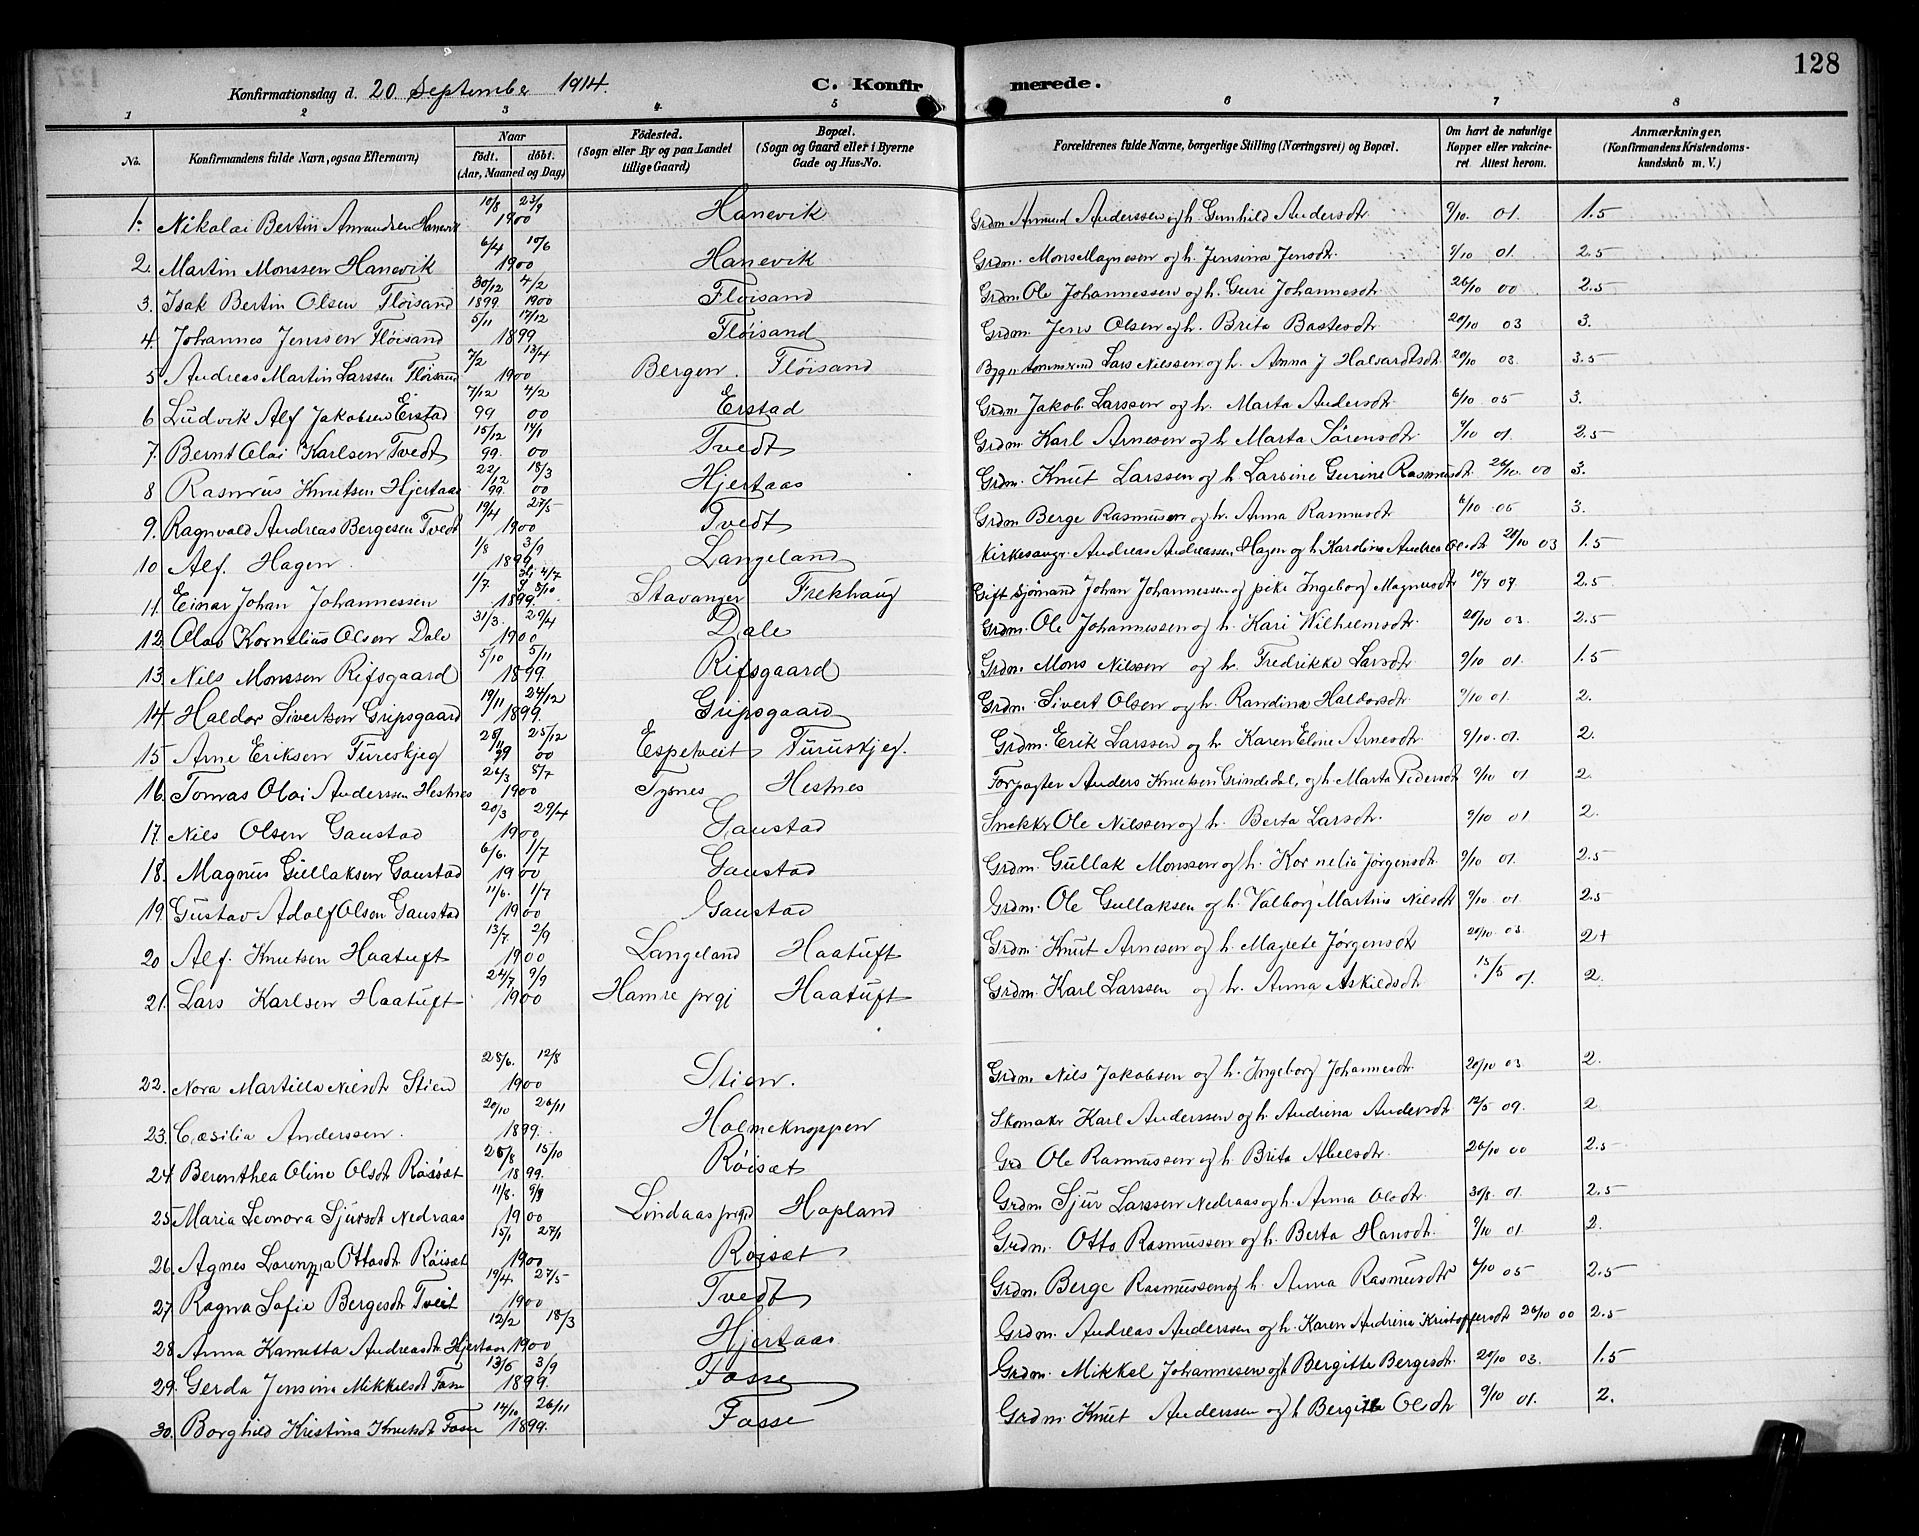 128
Konfirmationsdag d. 20 September 1914. C. Konfirmerede.
1 2 3 4 5 6 7 8
No. Konfirmandens fulde Navn, ogsaa Efternavn) Naar født. døbt. (Aar, Maaned og Dag) Födested. (Sogn eller By og paa Landet tillige Gaard) Bopæl. (Sogn og Gaard eller i Byerne Gade og Hus-No. Forældrenes fulde Navne, borgerlige Stilling (Næringsvei) og Bopæl. Om havt de naturlige Kopper eller vakcineret. Attest herom. Anmærkninger. (Konfirmandens Kristendomskundskab m. V.)
1. Nikolai Bertin Amundsen Hanevik 10/8 23/9 1900 Hanevik Grdm Amund Anderssen og h. Gunhild Andersdtr 9/10 01. 1.5
2. Martin Monssen Hanevik 6/4 10/6 1900 Hanevik Grdm. Mons Magnesen og h. Jensina Jensdtr. 9/10 01. 2.5
3. Isak Bertin Olsen Fløisand 30/12 1899 4/2 1900 Fløisand Grdm. Ole Johannessen og h. Guri Johannesdtr. 26/10 00 2.5
4. Johannes Jenssen Fløisand 5/11 17/12 1899 Fløisand Grdm. Jens Olsen og h. Brita Bastesdtr 20/10 03 3.
5 Andreas Martin Larssen Fløisand 7/2 13/4 1900 Bergen. Fløisand Lars Nilssen og h. Anna J Halvardsdtr 20/10 03. 3.5
6 Ludvik Alf Jakobsen Erstad 7/12 99 4/2 00 Erstad Grdm. Jakob Larssen og h. Marta Andersdtr 6/10 05 3.
7. Bernt Olai Karlsen Tvedt 15/12 99. 14/1 00 Tvedt Grdm. Karl Arnesen og h Marta Sörensdtr 9/10 01. 2.5
8 Rasmus Knutsen Hjertaas 22/12 99. 18/3 00 Hjertaas Grdm. Knut Larssen og h Larsine Gurine Rasmusdtr. 26/10. 00 3.
9. Ragnvald Andreas Bergesen Tvedt 19/4 27/5 1900 Tvedt Grdm Berge Rasmussen og h. Anna Rasmusdtr 6/10 05 3.
10 Alf. Hagen. 1/8 3/9 1899 Langeland Kirkesangr. Andreas Andreassen Hagen og h Kardina Andrea Olsdtr 20/10 03 1.5
11. Einar Johan Johannessen 1/7 1899. Stavanger Frekhaug Gift Sjømand Johan Johannessen og pike Ingeborg Magnusdtr 10/7 07. 2.5
12. Olav Kornelius Olsen Dale 31/3. 29/4 1900 Dale Grdm. Ole Johannessen og h. Kari Wilhelmsdtr. 20/10 03. 2.5
13. Nils Monssen Rifsgaard 5/10 5/11 1899. Rifsgaard Grdm. Mons Nilssen og h. Fredrikke Larsdtr. 9/10 01. 1.5
14. Haldor Sivertsen Gripsgaard 19/11 24/12 1899. Gripsgaard Grdm. Sivert Olsen og h. Randina Haldorsdtr. 9/10 01. 2.
15 Arne Eriksen Tureskjeg 99 25/12 00 Espetveit Turuskjeg. Grdm. Erik Larssen og h Karen Eline Arnesdtr 9/10. 01. 2.
16. Tomas Olai Anderssen Hestnes 26/3 8/7 1900 Tysnes Hestnes Forpagter Anders Knutsen Grindedal, og h. Marta Pedersdtr 9/10 01 2.
17. Nils Olsen Gaustad 20/3 29/4 1900 Gaustad Snekkr Ole Nilssen og h. Berta Larsdtr. 9/10 01 2.
18. Magnus Gullaksen Gaustad 6/6. 1/7 1900 Gaustad Grdm. Gullak Monssen og h. Kornelia Jørgensdtr. 9/10 01. 2.5
19. Gustav Adolf Olsen Gaustad 11/6. 1/7 1900 Gaustad Grdm. Ole Gullaksen og h. Valborg Martina Nilsdtr 9/10 01. 2.5
20 Alf. Knutsen Haatuft 13/7. 2/9 1900 Langeland Haatuft Grdm. Knut Arnesen og h. Magrete Jørgensdtr 20/10. 03. 2+
21. Lars Karlsen Haatuft 24/7 9/9 1900 Hamre prgj Haatuft Grdm. Karl Larssen og h. Anna Askildsdtr 15/5 01. 2.
22. Nora Martilla Nilsdtr Stien 25/6. 12/8 1900 Stien. Grdm. Nils Jakobsen og h. Ingeborg Johannesdtr. 20/10 03 2.
23. Cæsilia Anderssen. 20/10 26/11 1899. Holmeknappen Skomakr Karl Anderssen og h. Andrina Andersdtr 12/5 09. 2
24 Berenthea Oline Olsdtr Røisæt 25/8 15/10 1899. Røisæt Grd Ole Rasmussen og h. Brita Abelsdtr. 26/10 00 2.5
25. Maria Leonora Sjursdtr Nedraas 11/8. 9/9 1900 Lindaas prgj Hopland Grdm Sjur Larssen Nedraas og h. Anna Olsdtr. 30/8 01. 2.5
26. Agnes Lorenza Ottosdtr Røisæt 15/1 27/1 1900 Røisæt Grdm. Otto Rasmussen og h. Berta Hansdtr. 9/10 01. 2.
27. Ragna Sofie Bergesdtr Tveit 19/4. 27/5 1900 Tvedt Grdm. Berge Rasmussen og h. Anna Rasmusdtr 6/10 05 2.5
28. Anna Kamitta Andreasdtr Hjertaas 12/2 18/3 1900 Hjertaas Grdm. Andreas Anderssen og h. Karen Andrina Kristoffersdtr 26/10 00 2.5
29. Gerda Jensine Mikkelsdtr Fosse 13/6 3/9 1899. Fosse Grdm. Mikkel Johannesen og h Bergitte Bergesdtr. 20/10 03. 1.5
30. Borghild Kristina Knutsdtr Fosse 14/10 26/11 1899. Fosse Grdm. Knut Anderssen og h Bergitte Olsdtr 9/10 01. 2.